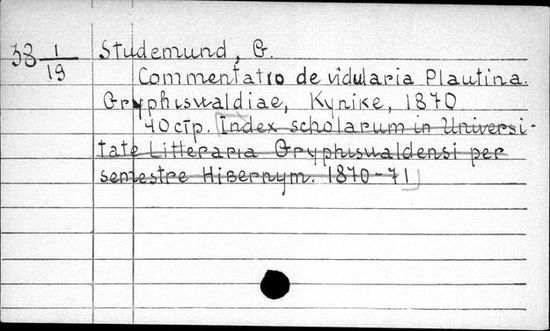 38 1/19 Studemund, G.
Commentatio de vidularia Plautina.
Gryphiswaldiae, Kynike, 1870
40 стр. [Index scholarum in Universi-
tate Litteraria Gryphiswaldensi per
semestre Hibernym. 1870-71]